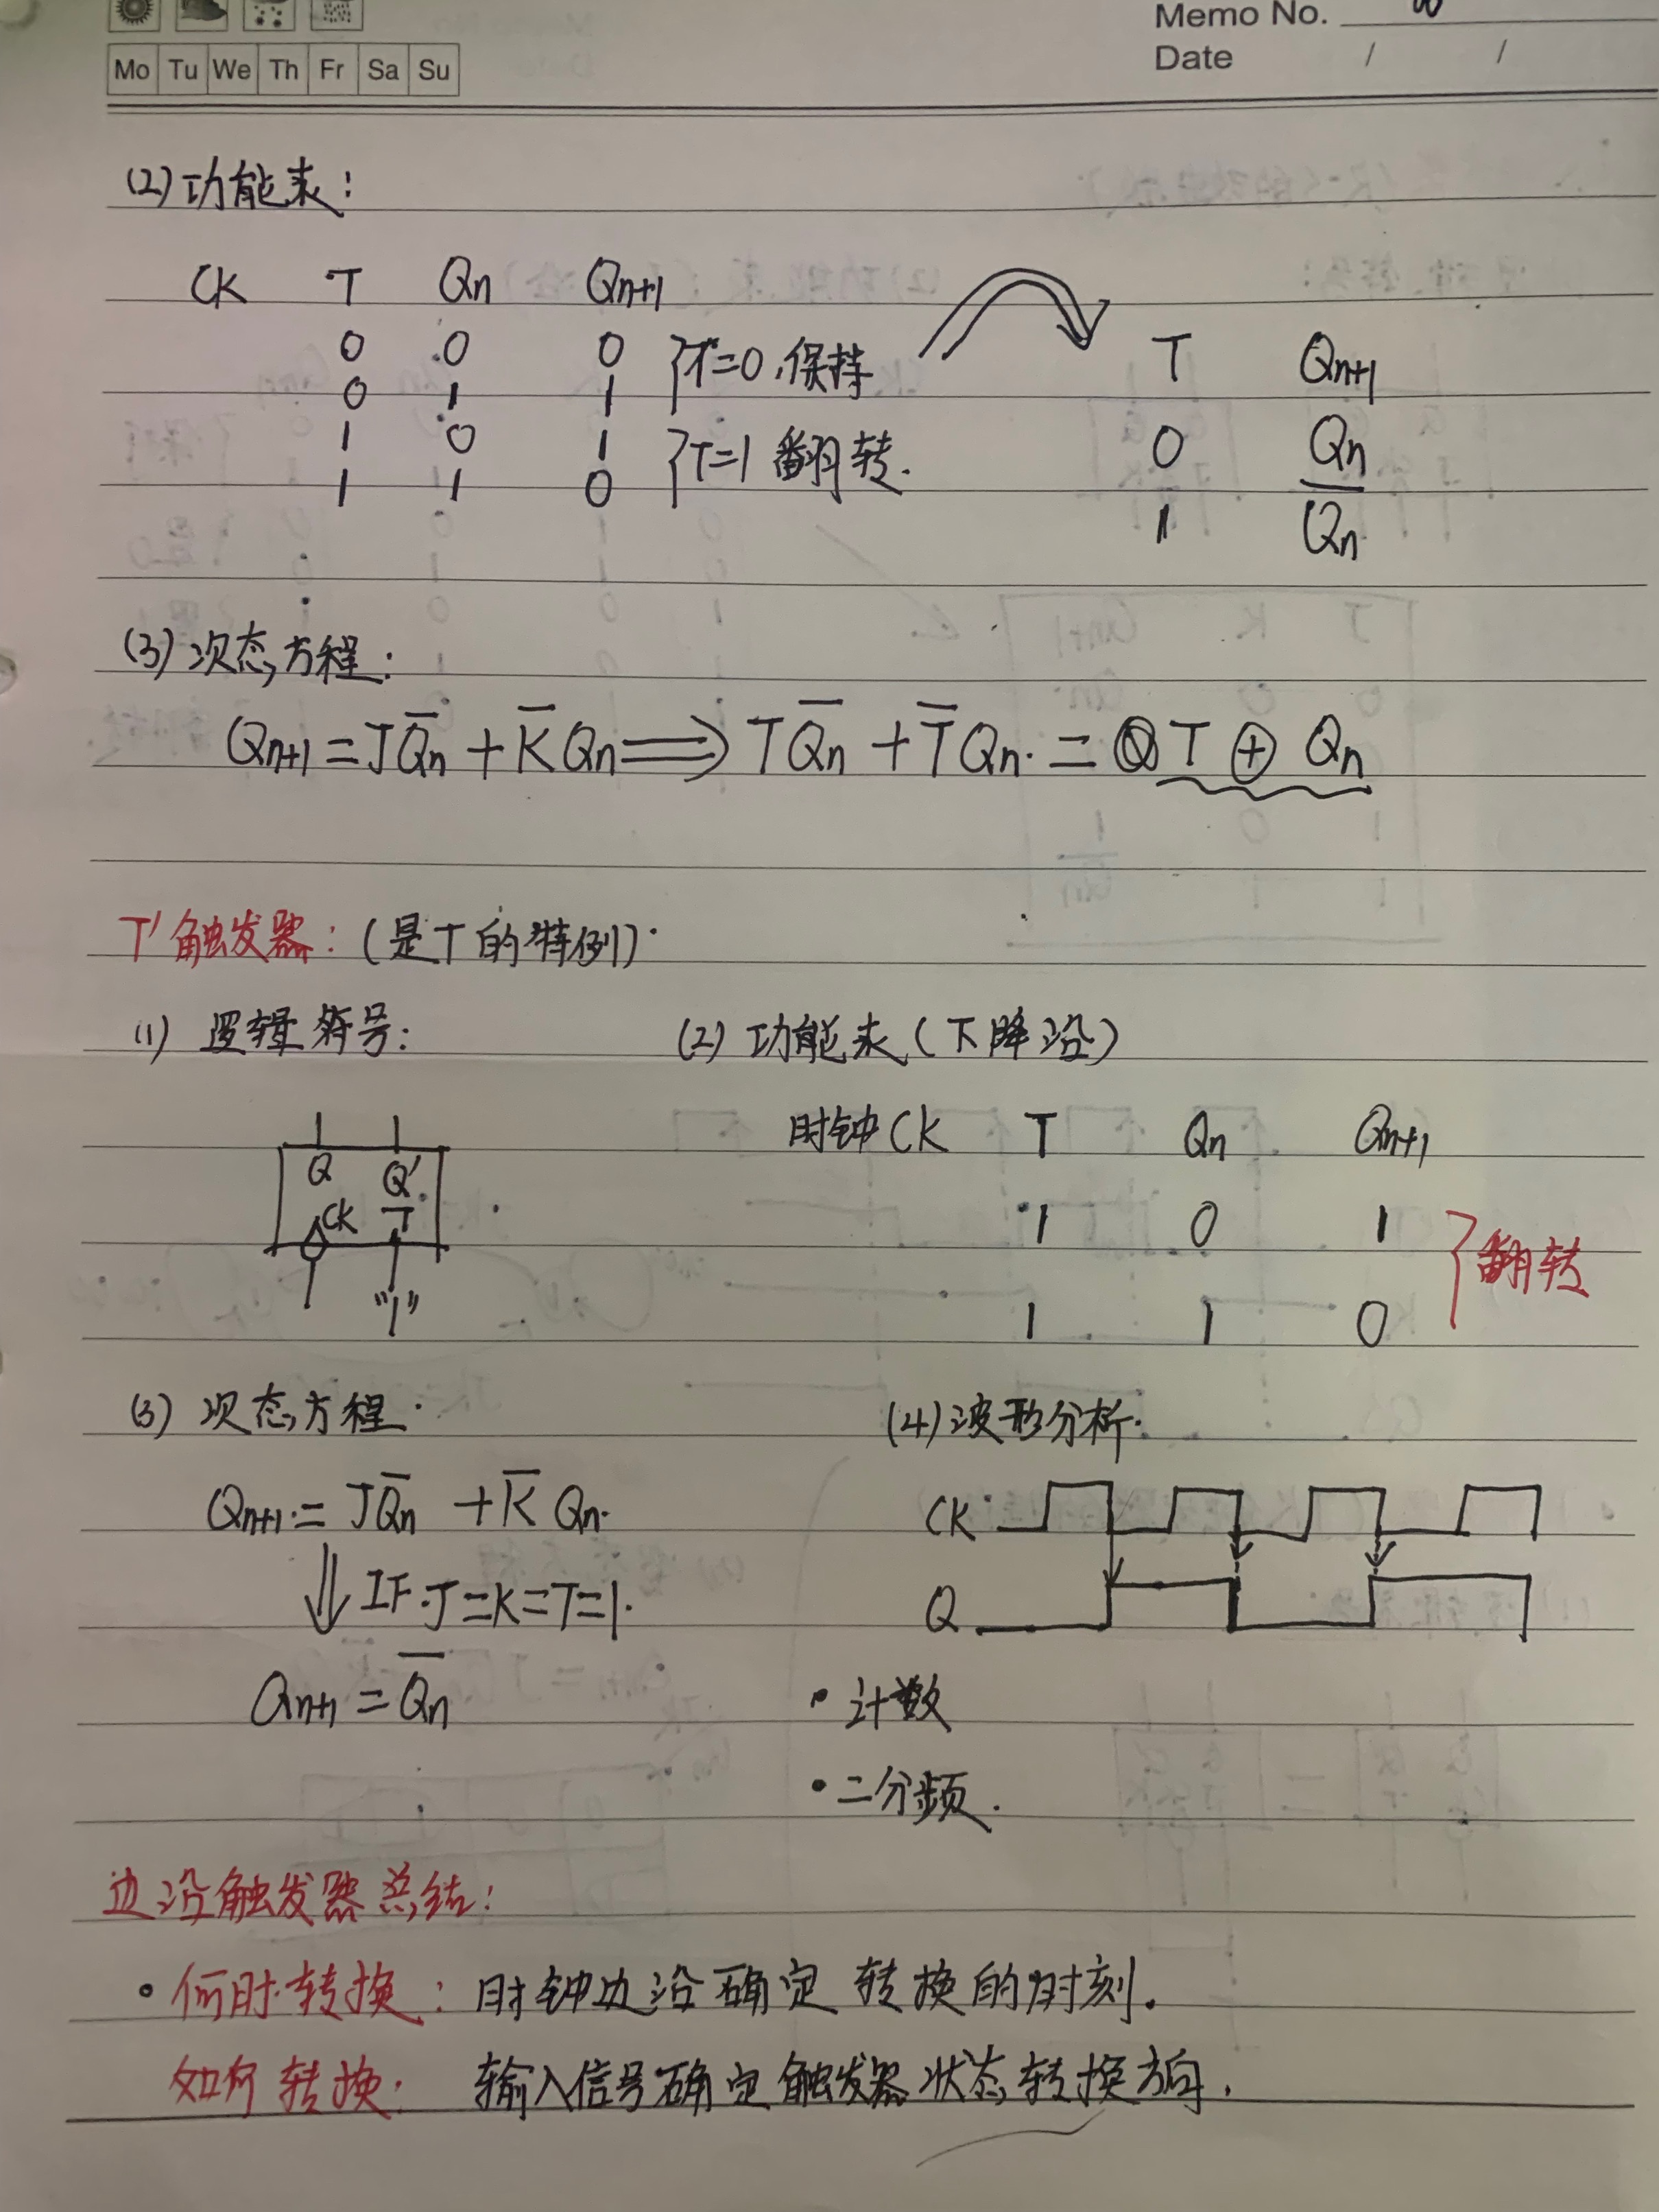 Memo No.
Mo Tu We Th Fr Sa Su
Date / /
(2)功能表:
CK T Qn Qn+1
0 0 0 }T=0,保持
0 1 1
1 0 1 }T=1 翻转.
1 1 0
T Qn+1
0 Qn
1 Q̅n
(3)次态方程:
Qn+1=JQ̅n+K̅Qn⟹TQ̅n+T̅Qn.=T⊕Qn
T'触发器:(是T的特例)
(1) 逻辑符号:
Q Q'
CK T
"1"
(2)功能表(下降沿)
时钟CK T Qn Qn+1
1 0 1
}翻转
1 1 0
(3) 次态方程.
Qn+1=JQ̅n+K̅Qn.
⇓IF.J=K=T=1.
Qn+1=Q̅n
(4)波形分析.
CK
Q
•计数
•二分频.
边沿触发器总结:
•何时转换:时钟边沿确定转换的时刻.
如何转换:输入信号确定触发器状态转换方向.